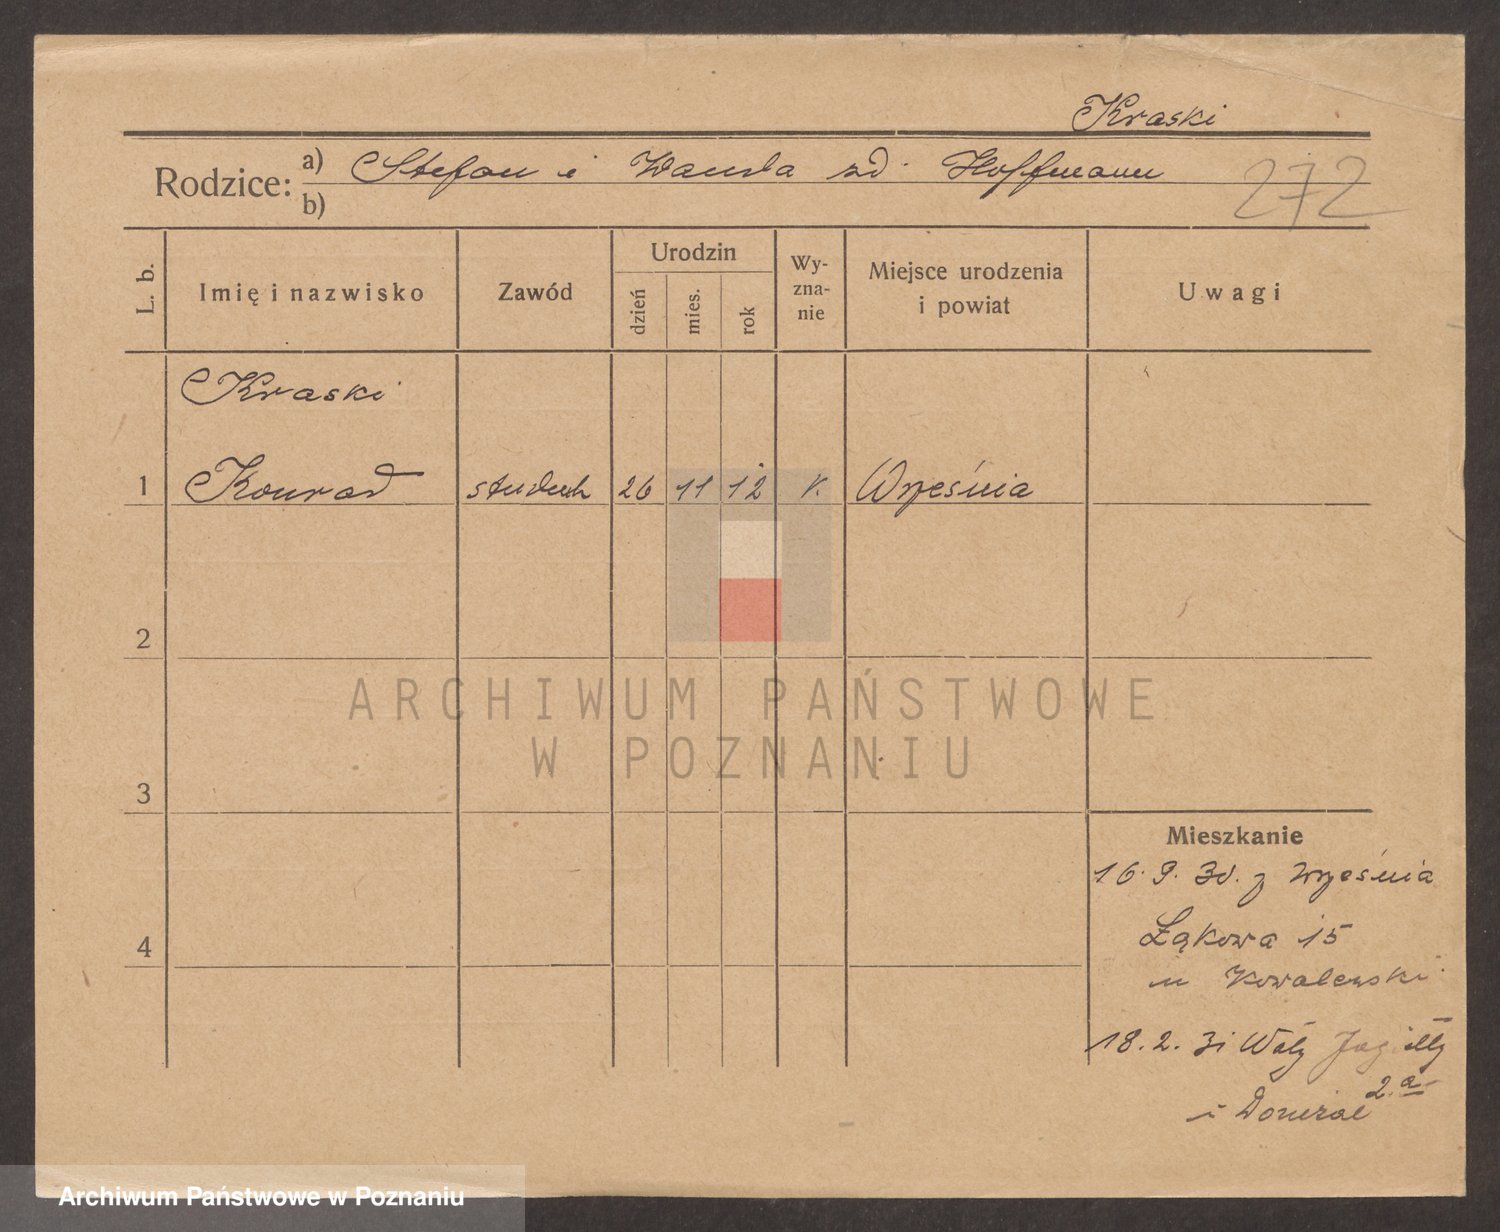 Kraski
Rodzice: a) Stefan i Wanda zd. Hoffmann
b)
272
L. b.
Imię i nazwisko
Zawód
Urodzin
dzień
mies.
rok
Wy-
zna-
nie
Miejsce urodzenia
i powiat
Uwagi
Kraski
1 Konrad student 26 11 12 k. Września
2
3
4
Mieszkanie
16. 9. 30. z Września
Łąkowa 15
u Kowalewski
18. 2. 31 Wały Jagiełły
2.a
ARCHIWUM PAŃSTWOWE
W POZNANIU
Archiwum Państwowe w Poznaniu